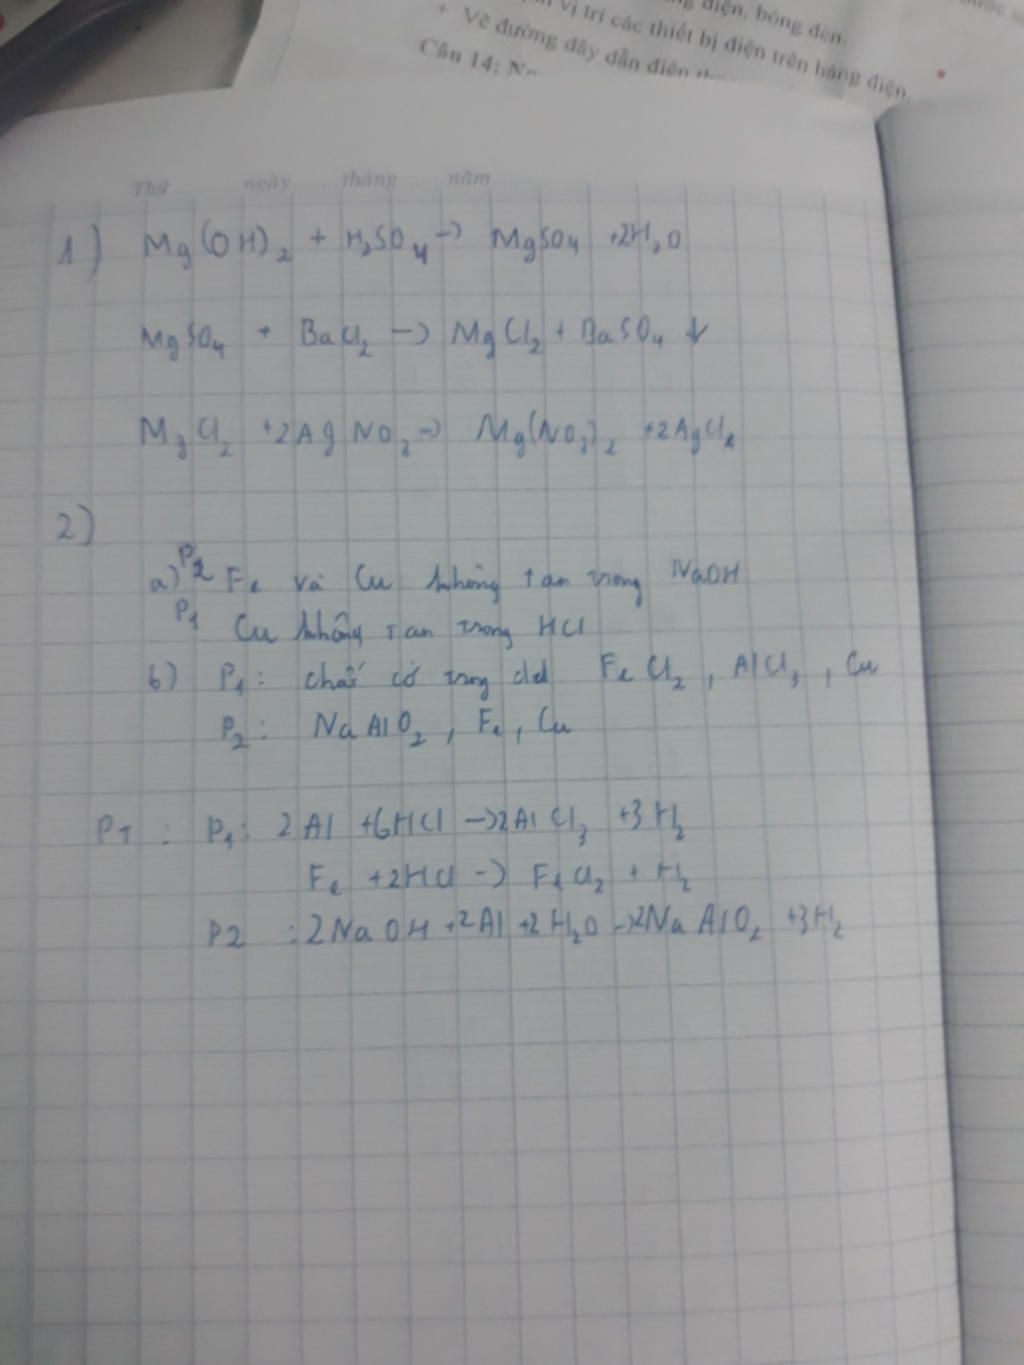 điện, bóng đèn.
vị trí các thiết bị điện trên bảng điện.
+ Vẽ đường dây dẫn điện
Câu 14:
Thứ ngày tháng năm
1) Mg(OH)₂ + H₂SO₄ → MgSO₄ +2H₂O
MgSO₄ + BaCl₂ → MgCl₂ + BaSO₄ ↓
MgCl₂ +2AgNO₃ → Mg(NO₃)₂ +2AgCl↓
2)
a) P2 Fe và Cu không tan trong NaOH
P1 Cu không tan trong HCl
b) P₁: chất có trong dd FeCl₂, AlCl₃, Cu
P₂: NaAlO₂, Fe, Cu
PT: P₁: 2Al +6HCl → 2AlCl₃ +3H₂
Fe +2HCl → FeCl₂ + H₂
P2 : 2NaOH +2Al +2H₂O → 2NaAlO₂ +3H₂